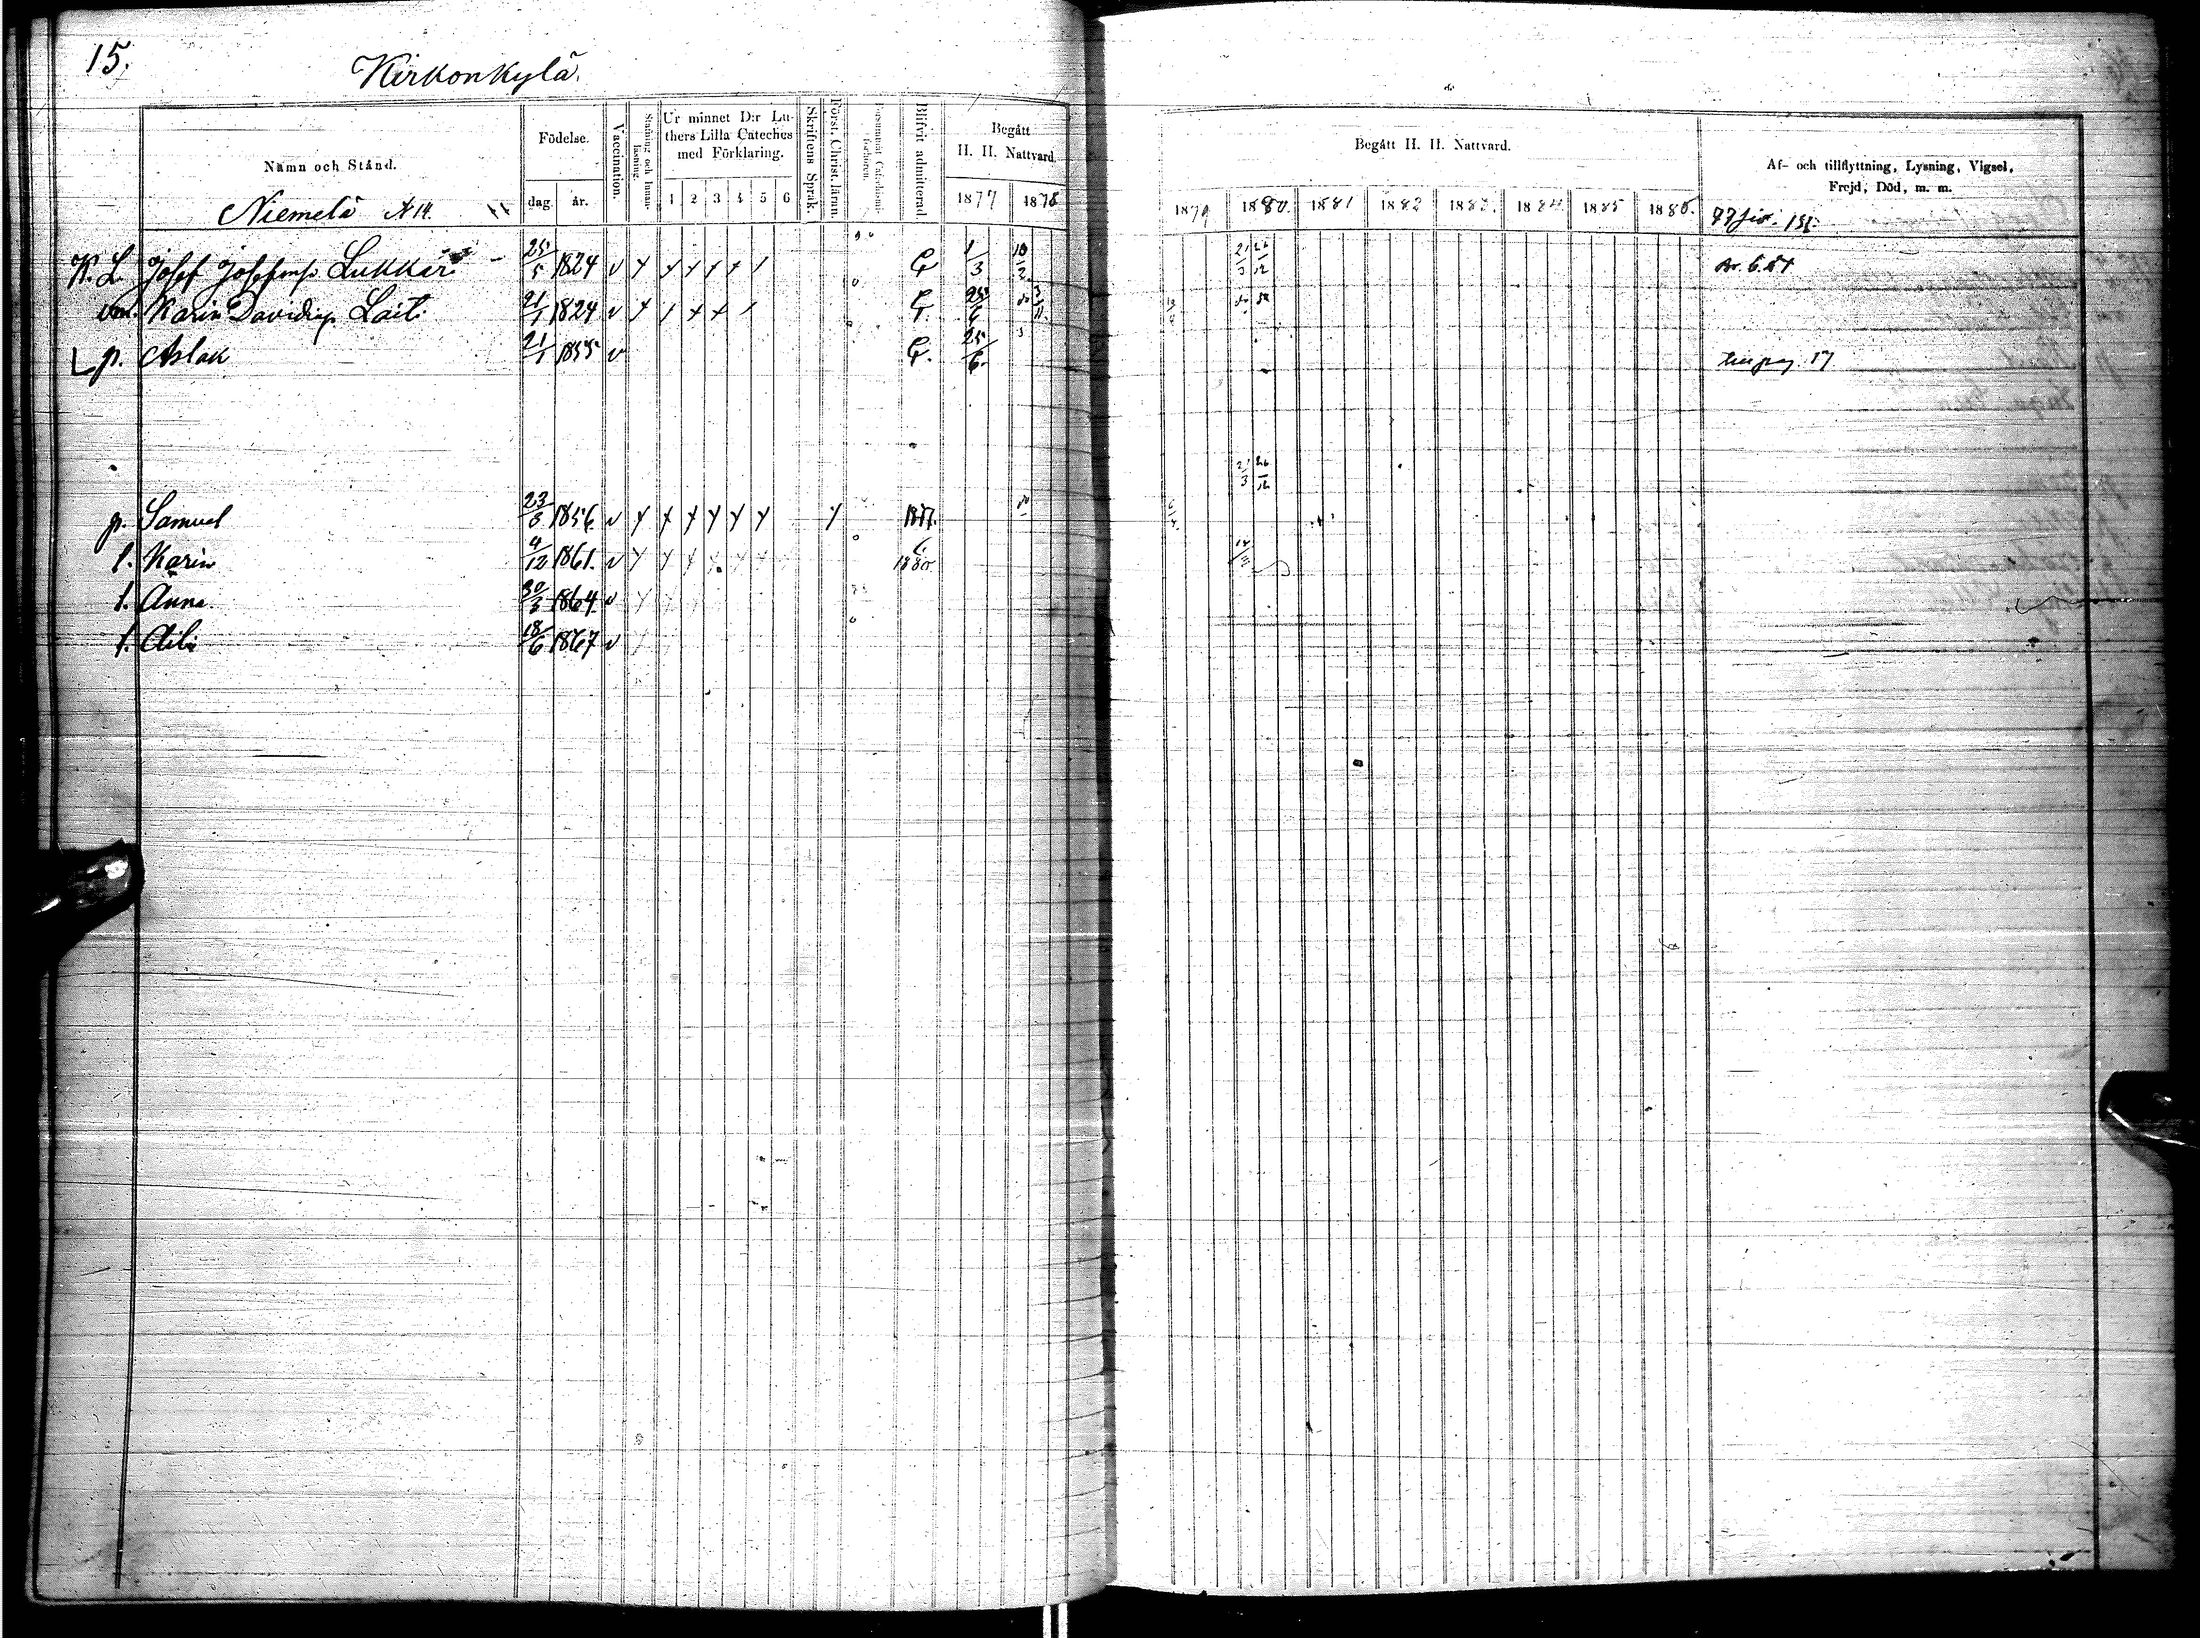 15.
Kirkonkylä.
Namn och Stånd.
Födelse.
dag. år.
Vaccination.
Stafning och Innanläsning.
Ur minnet D:r Luthers Lilla Cateches med Förklaring.
1 2 3 4 5 6
Skriftens Språk.
Först. Christ. läran.
Försummat Catechismi-förhören.
Blifvit admitterad
Begått H. H. Nattvard
1877 1878
Begått H. H. Nattvard.
1879 1880. 1881 1882 1883. 1884. 1885 1886.
Af- och tillflyttning, Lysning, Vigsel, Frejd, Död, m. m.
Niemelä N 14.
K. L. Josef Josefsson Lukkari 25/5 1824 v G 1/3 10/2 21/3 26/12
Karin Davidsdr. Laiti 21/1 1824 v G. 25/6
p. Aslak 21/1 1855 v G. 25/6. 17
21/3 26/12
p. Samuel 23/3 1856 v 1877.
f. Karin 4/12 1861. v 1880
f. Anna. 30/3 1864 v
f. Aili 18/6 1867 v